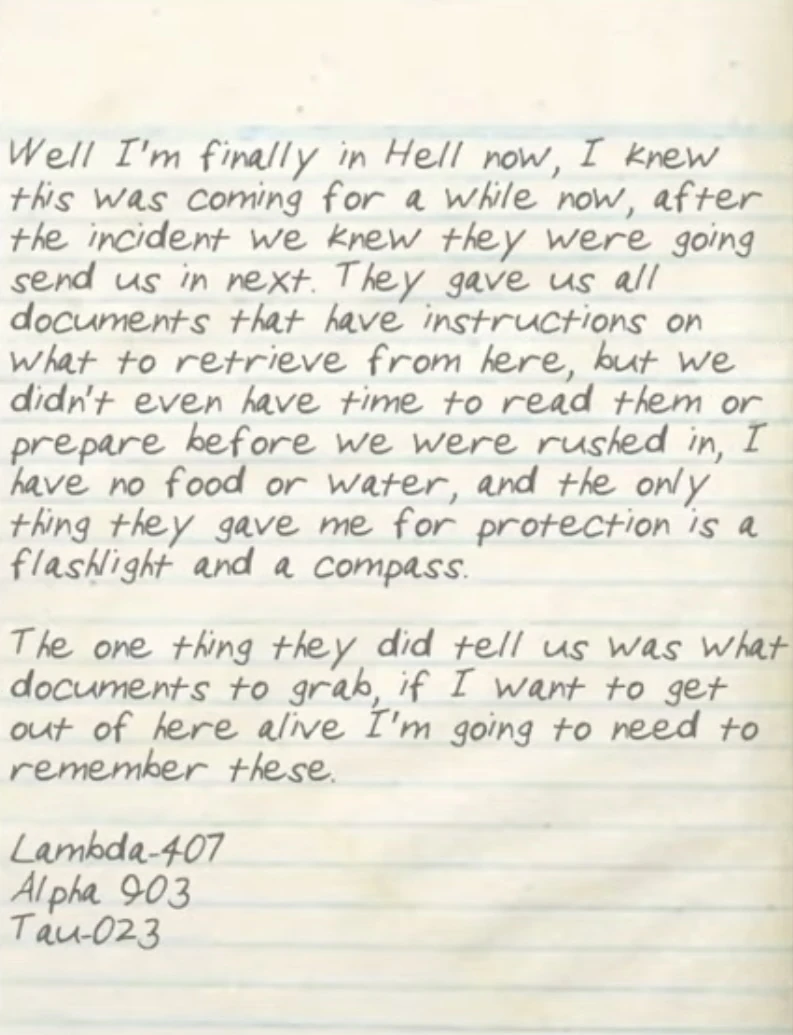 Well I'm finally in Hell now, I knew
this was coming for a while now, after
the incident we knew they were going
send us in next. They gave us all
documents that have instructions on
what to retrieve from here, but we
didn't even have time to read them or
prepare before we were rushed in, I
have no food or water, and the only
thing they gave me for protection is a
flashlight and a compass.

The one thing they did tell us was what
documents to grab, if I want to get
out of here alive I'm going to need to
remember these.

Lambda-407
Alpha 903
Tau-023